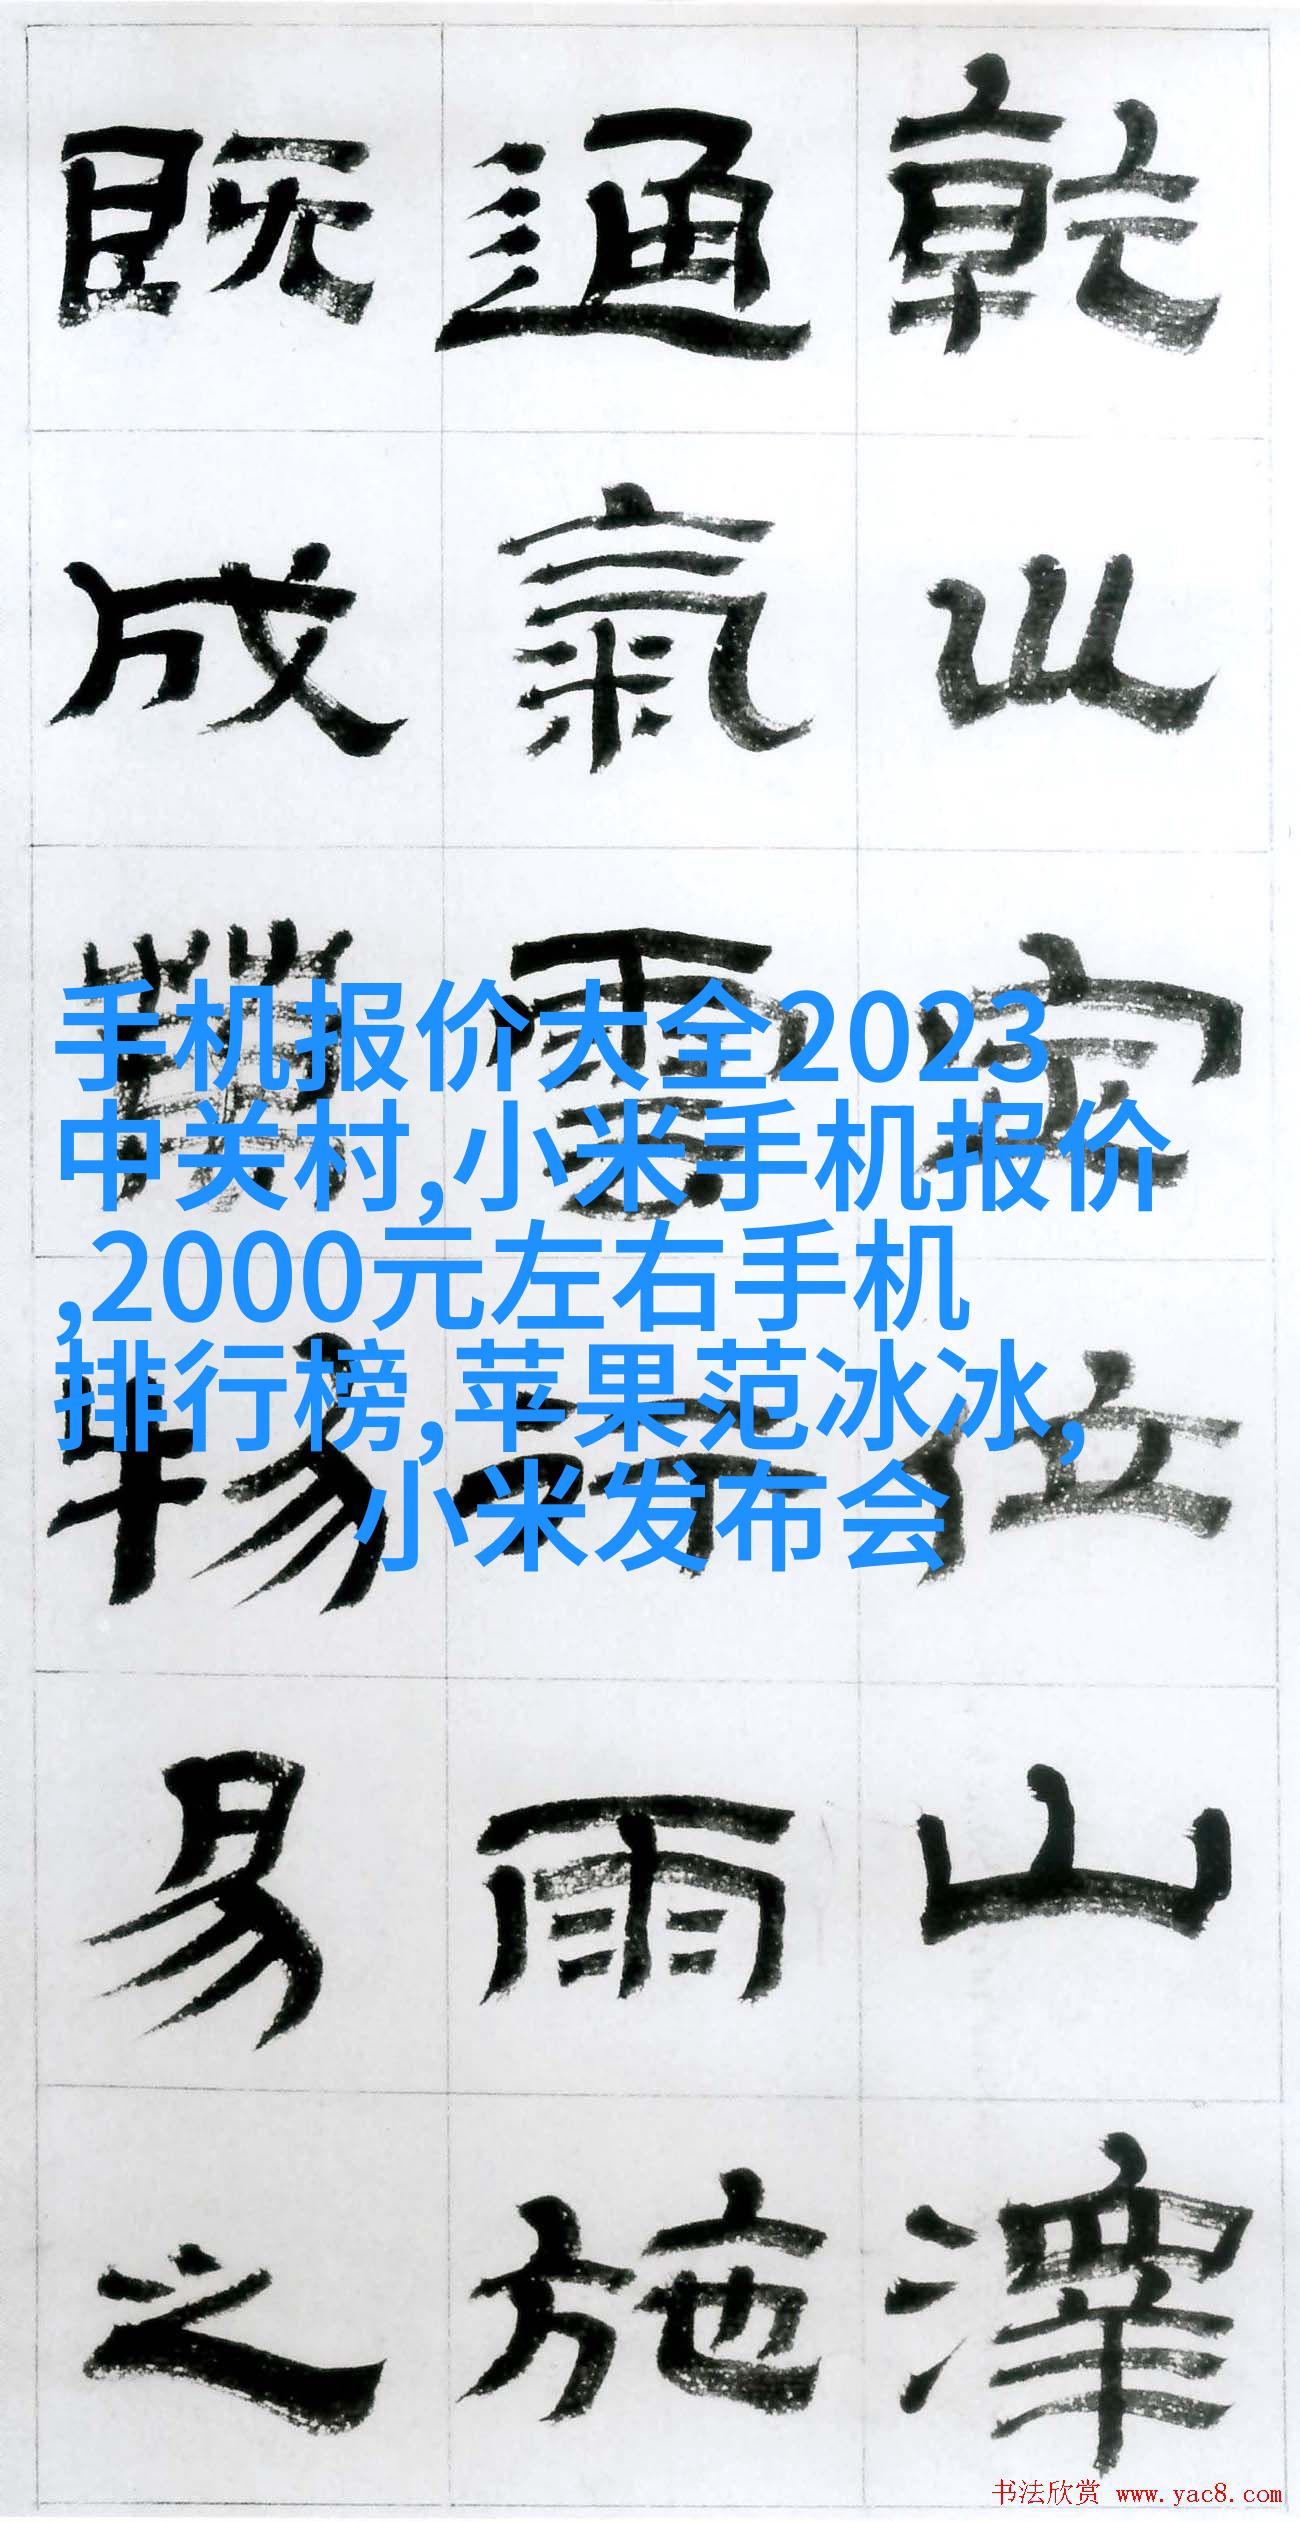 乾巛定位山澤
通氣雲行雨施
既成萬物易之
手机报价大全2023
中关村,小米手机报价
,2000元左右手机
排行榜,苹果范冰冰,
小米发布会
书法欣赏 www.yac8.com